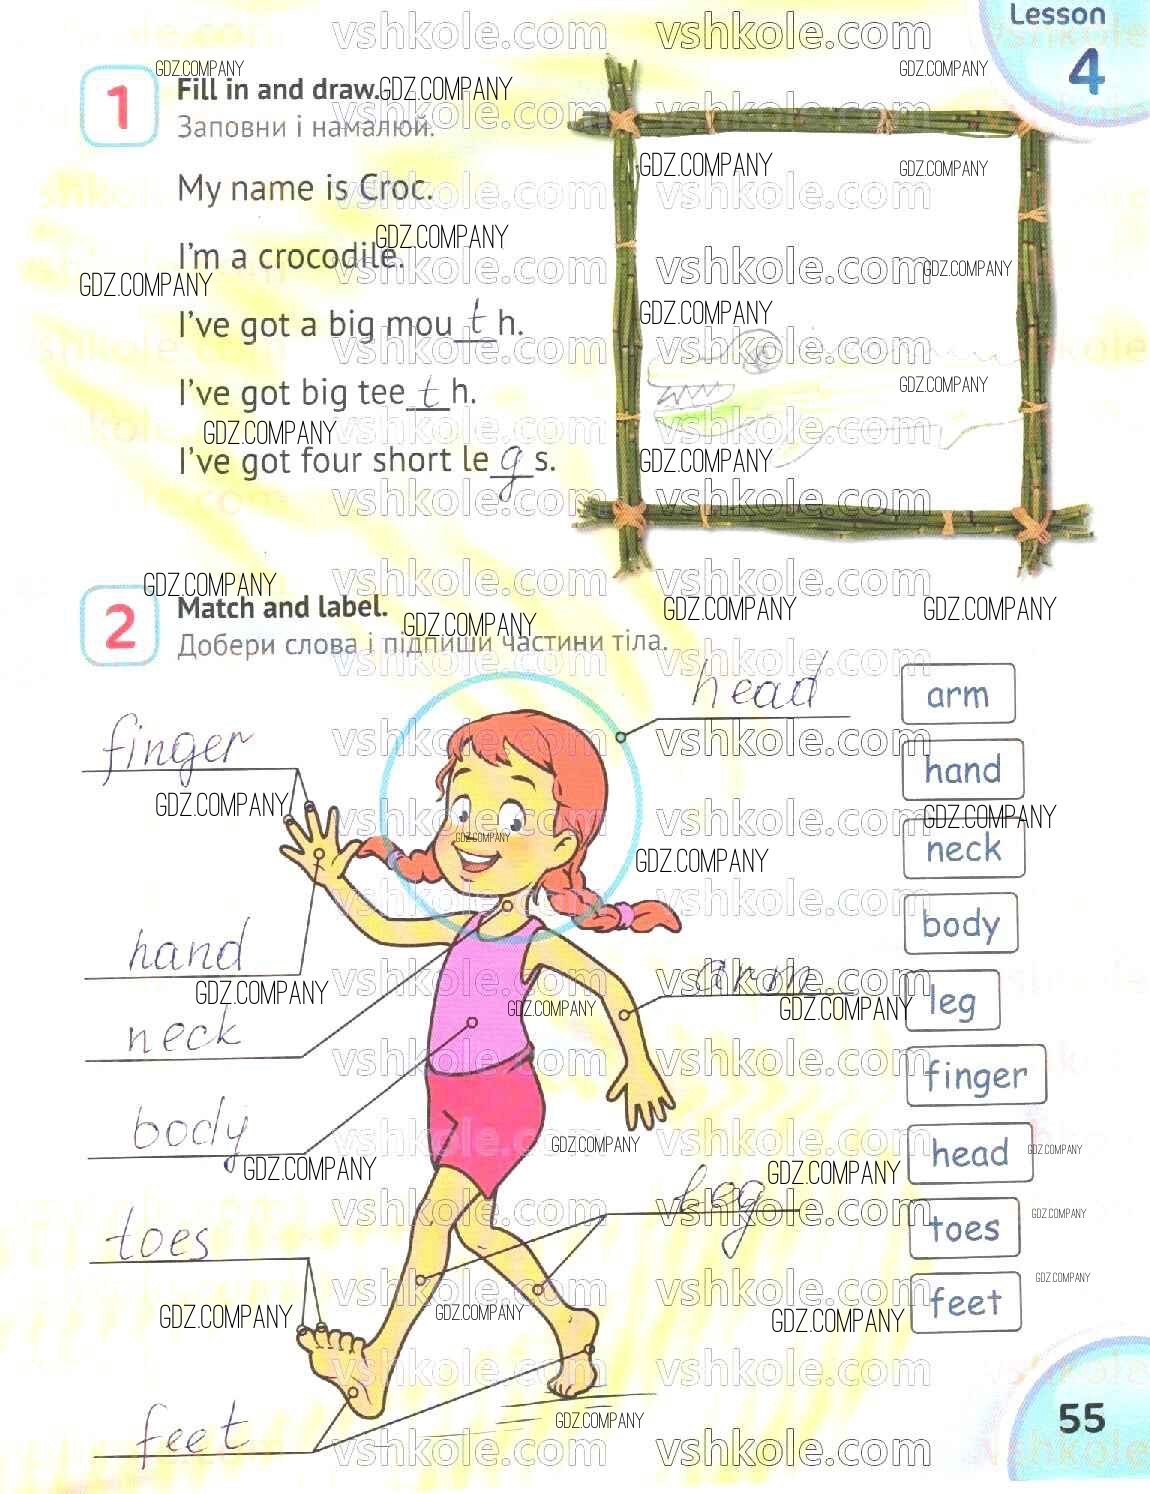 Lesson
4
1
Fill in and draw.
Заповни і намалюй.
My name is Croc.
I'm a crocodile.
I've got a big mouth.
I've got big teeth.
I've got four short legs.
2
Match and label.
Добери слова і підпиши частини тіла.
head
finger
hand
neck
body
toes
feet
arm
leg
arm
hand
neck
body
leg
finger
head
toes
feet
55
vshkole.com
GDZ.COMPANY